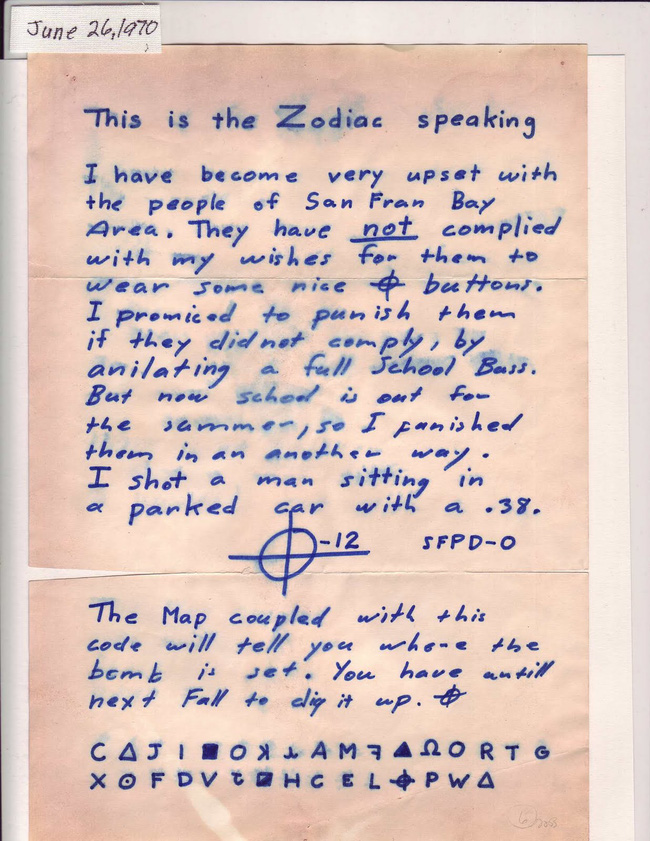 June 26, 1970
This is the Zodiac speaking
I have become very upset with
the people of San Fran Bay
Area. They have not complied
with my wishes for them to
wear some nice ⌖ buttons.
I promiced to punish them
if they did not comply, by
anilating a full School Buss.
But now school is out for
the summer, so I punished
them in an another way.
I shot a man sitting in
a parked car with a .38.
⌖-12 SFPD-0
The Map coupled with this
code will tell you where the
bomb is set. You have untill
next Fall to dig it up. ⌖
C Δ J I ■ O ꓘ ⅄ A M ꟻ ▲ Ω O R T G
X ⊙ F D V Ʇ ◪ H C E L ⌖ P W Δ